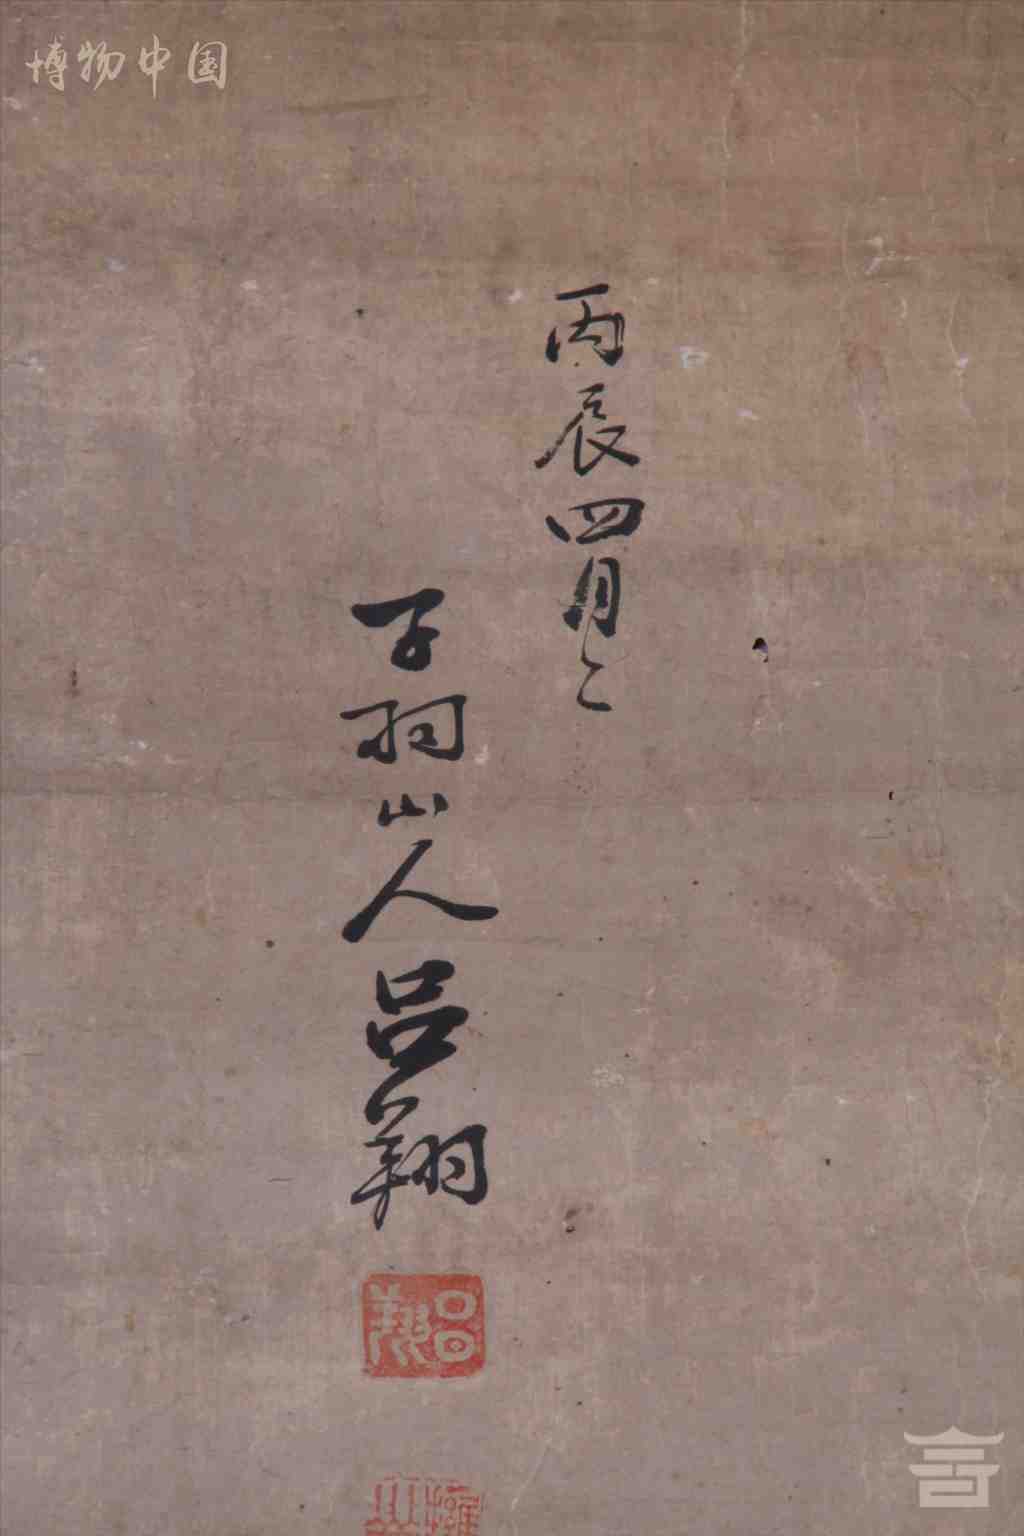 博物中国
丙辰四月
子羽山人吕翔
吕翔